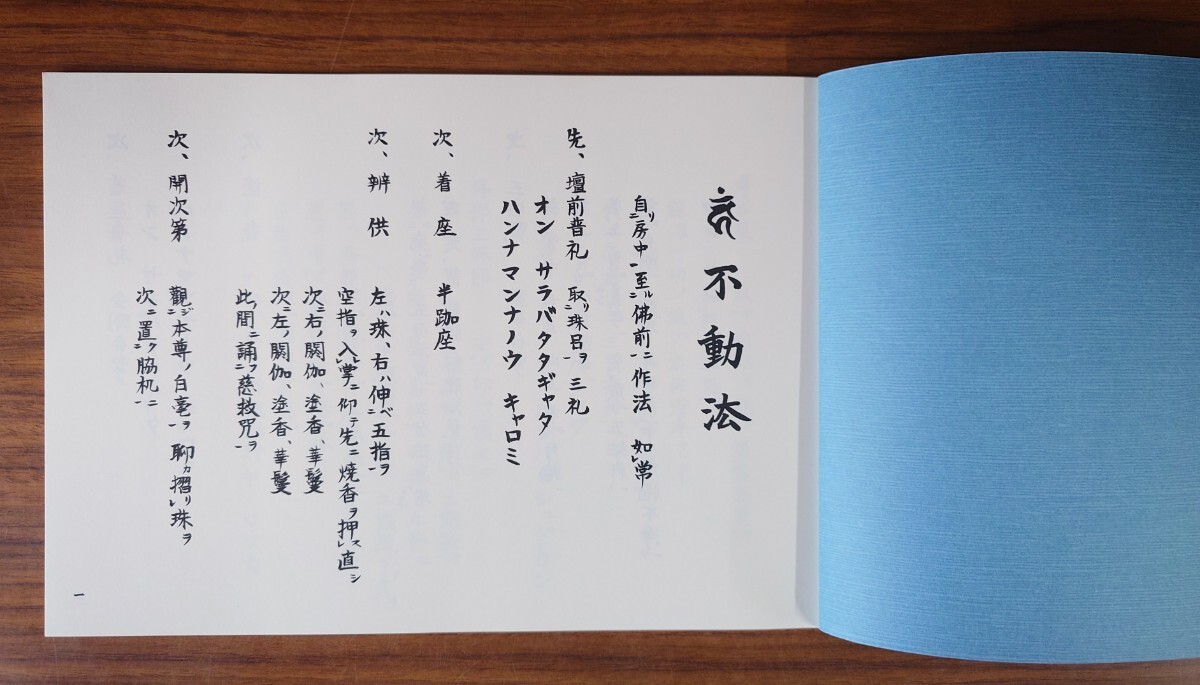 不動法
自リ二房中一至ル二佛前ニ一作法 如レ常
先、壇前普礼 取リ二珠呂ヲ一三礼
オン サラバタタギャタ
ハンナマンナノウ キャロミ
次、着座 半跏座
次、辨供 左ハ珠、右ハ伸ベ二五指ヲ一
空指ヲ入レレ掌ニ仰テ先ニ焼香ヲ押スレ直シ
次ニ右ノ閼伽、塗香、華鬘
次ニ左ノ閼伽、塗香、華鬘
此ノ間ニ誦フ二慈救咒ヲ一
次、開次第 觀ジ二本尊ノ白毫ヲ一聊カ摺リレ珠ヲ
次ニ置ク二脇机ニ一
一